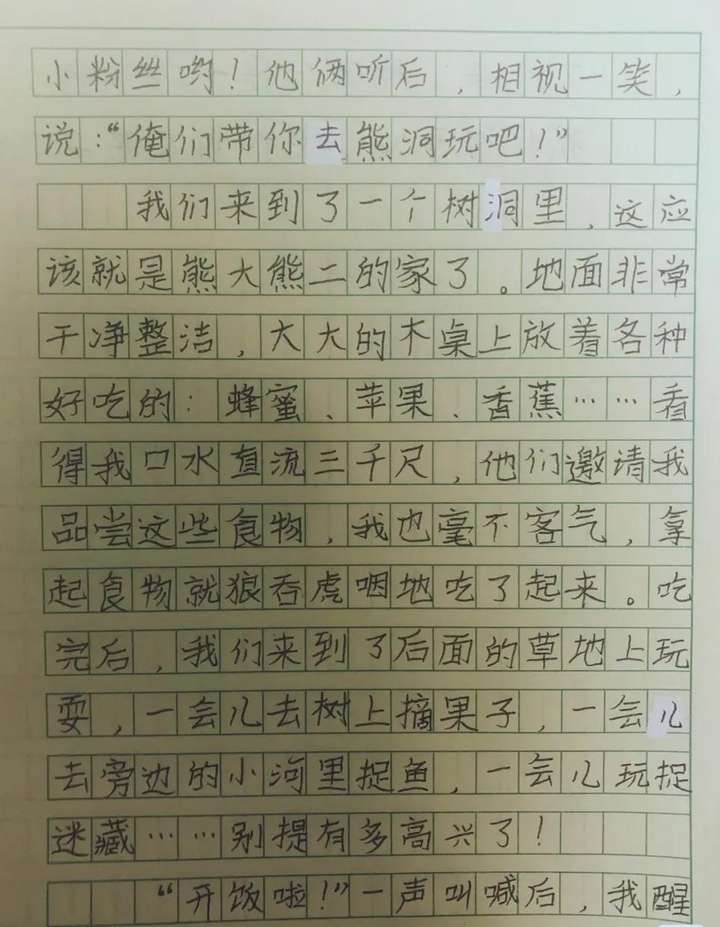 小粉丝哟！他俩听后，相视一笑，
说：“俺们带你去熊洞玩吧！”
我们来到了一个树洞里，这应
该就是熊大熊二的家了。地面非常
干净整洁，大大的木桌上放着各种
好吃的：蜂蜜、苹果、香蕉……看
得我口水直流三千尺，他们邀请我
品尝这些食物，我也毫不客气，拿
起食物就狼吞虎咽地吃了起来。吃
完后，我们来到了后面的草地上玩
耍，一会儿去树上摘果子，一会儿
去旁边的小河里捉鱼，一会儿玩捉
迷藏……别提有多高兴了！
“开饭啦！”一声叫喊后，我醒